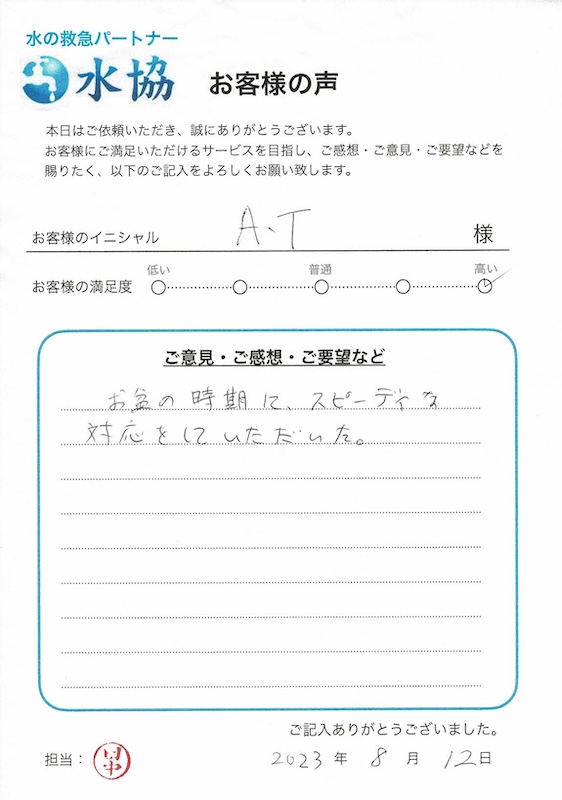 水の救急パートナー
水協 お客様の声
本日はご依頼いただき、誠にありがとうございます。
お客様にご満足いただけるサービスを目指し、ご感想・ご意見・ご要望などを
賜りたく、以下のご記入をよろしくお願い致します。
お客様のイニシャル A.T 様
低い 普通 高い
お客様の満足度
ご意見・ご感想・ご要望など
お盆の時期に、スピーディな
対応をしていただいた。
ご記入ありがとうございました。
担当: 田中 2023年 8月 12日